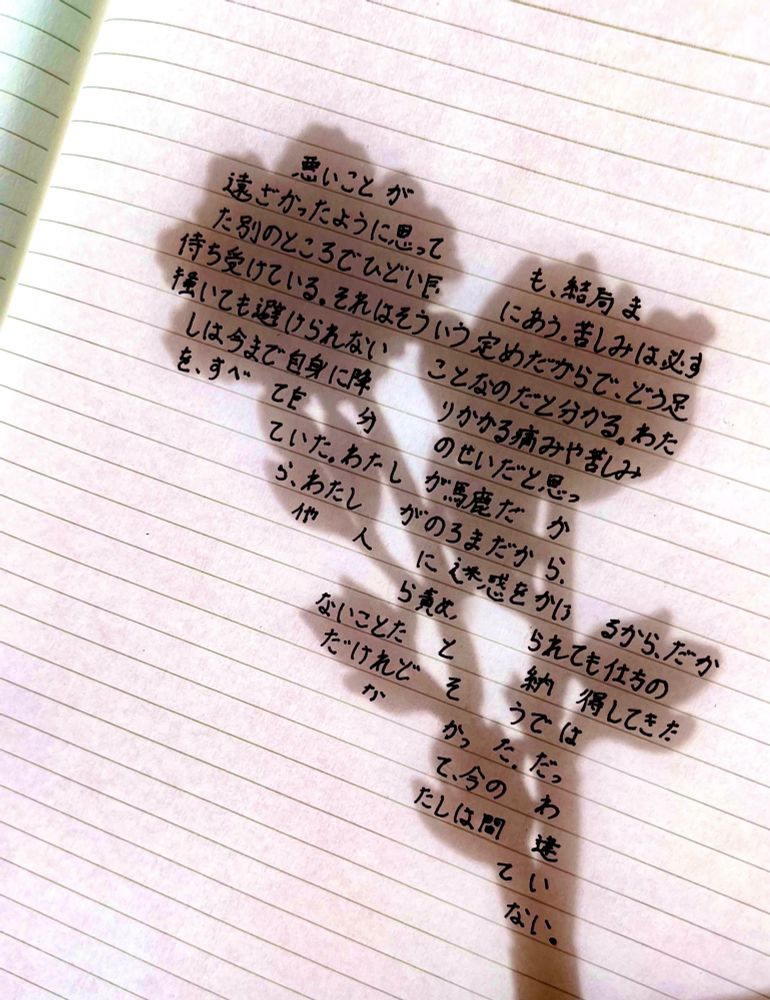 悪いことが
遠ざかったように思っても、結局ま
た別のところでひどい目にあう。苦しみは必ず
待ち受けている。それはそういう定めだからで、どう足
掻いても避けられないことなのだと分かる。わた
しは今まで自身に降りかかる痛みや苦しみ
を、すべて自分のせいだと思っ
ていた。わたしが馬鹿だか
ら、わたしがのろまだから、
他人に迷惑をかけるから、だか
ら責められても仕方の
ないことだと納得してきた
だけれどそうでは
なかった。だっ
て、今のわ
たしは間違
てい
ない。